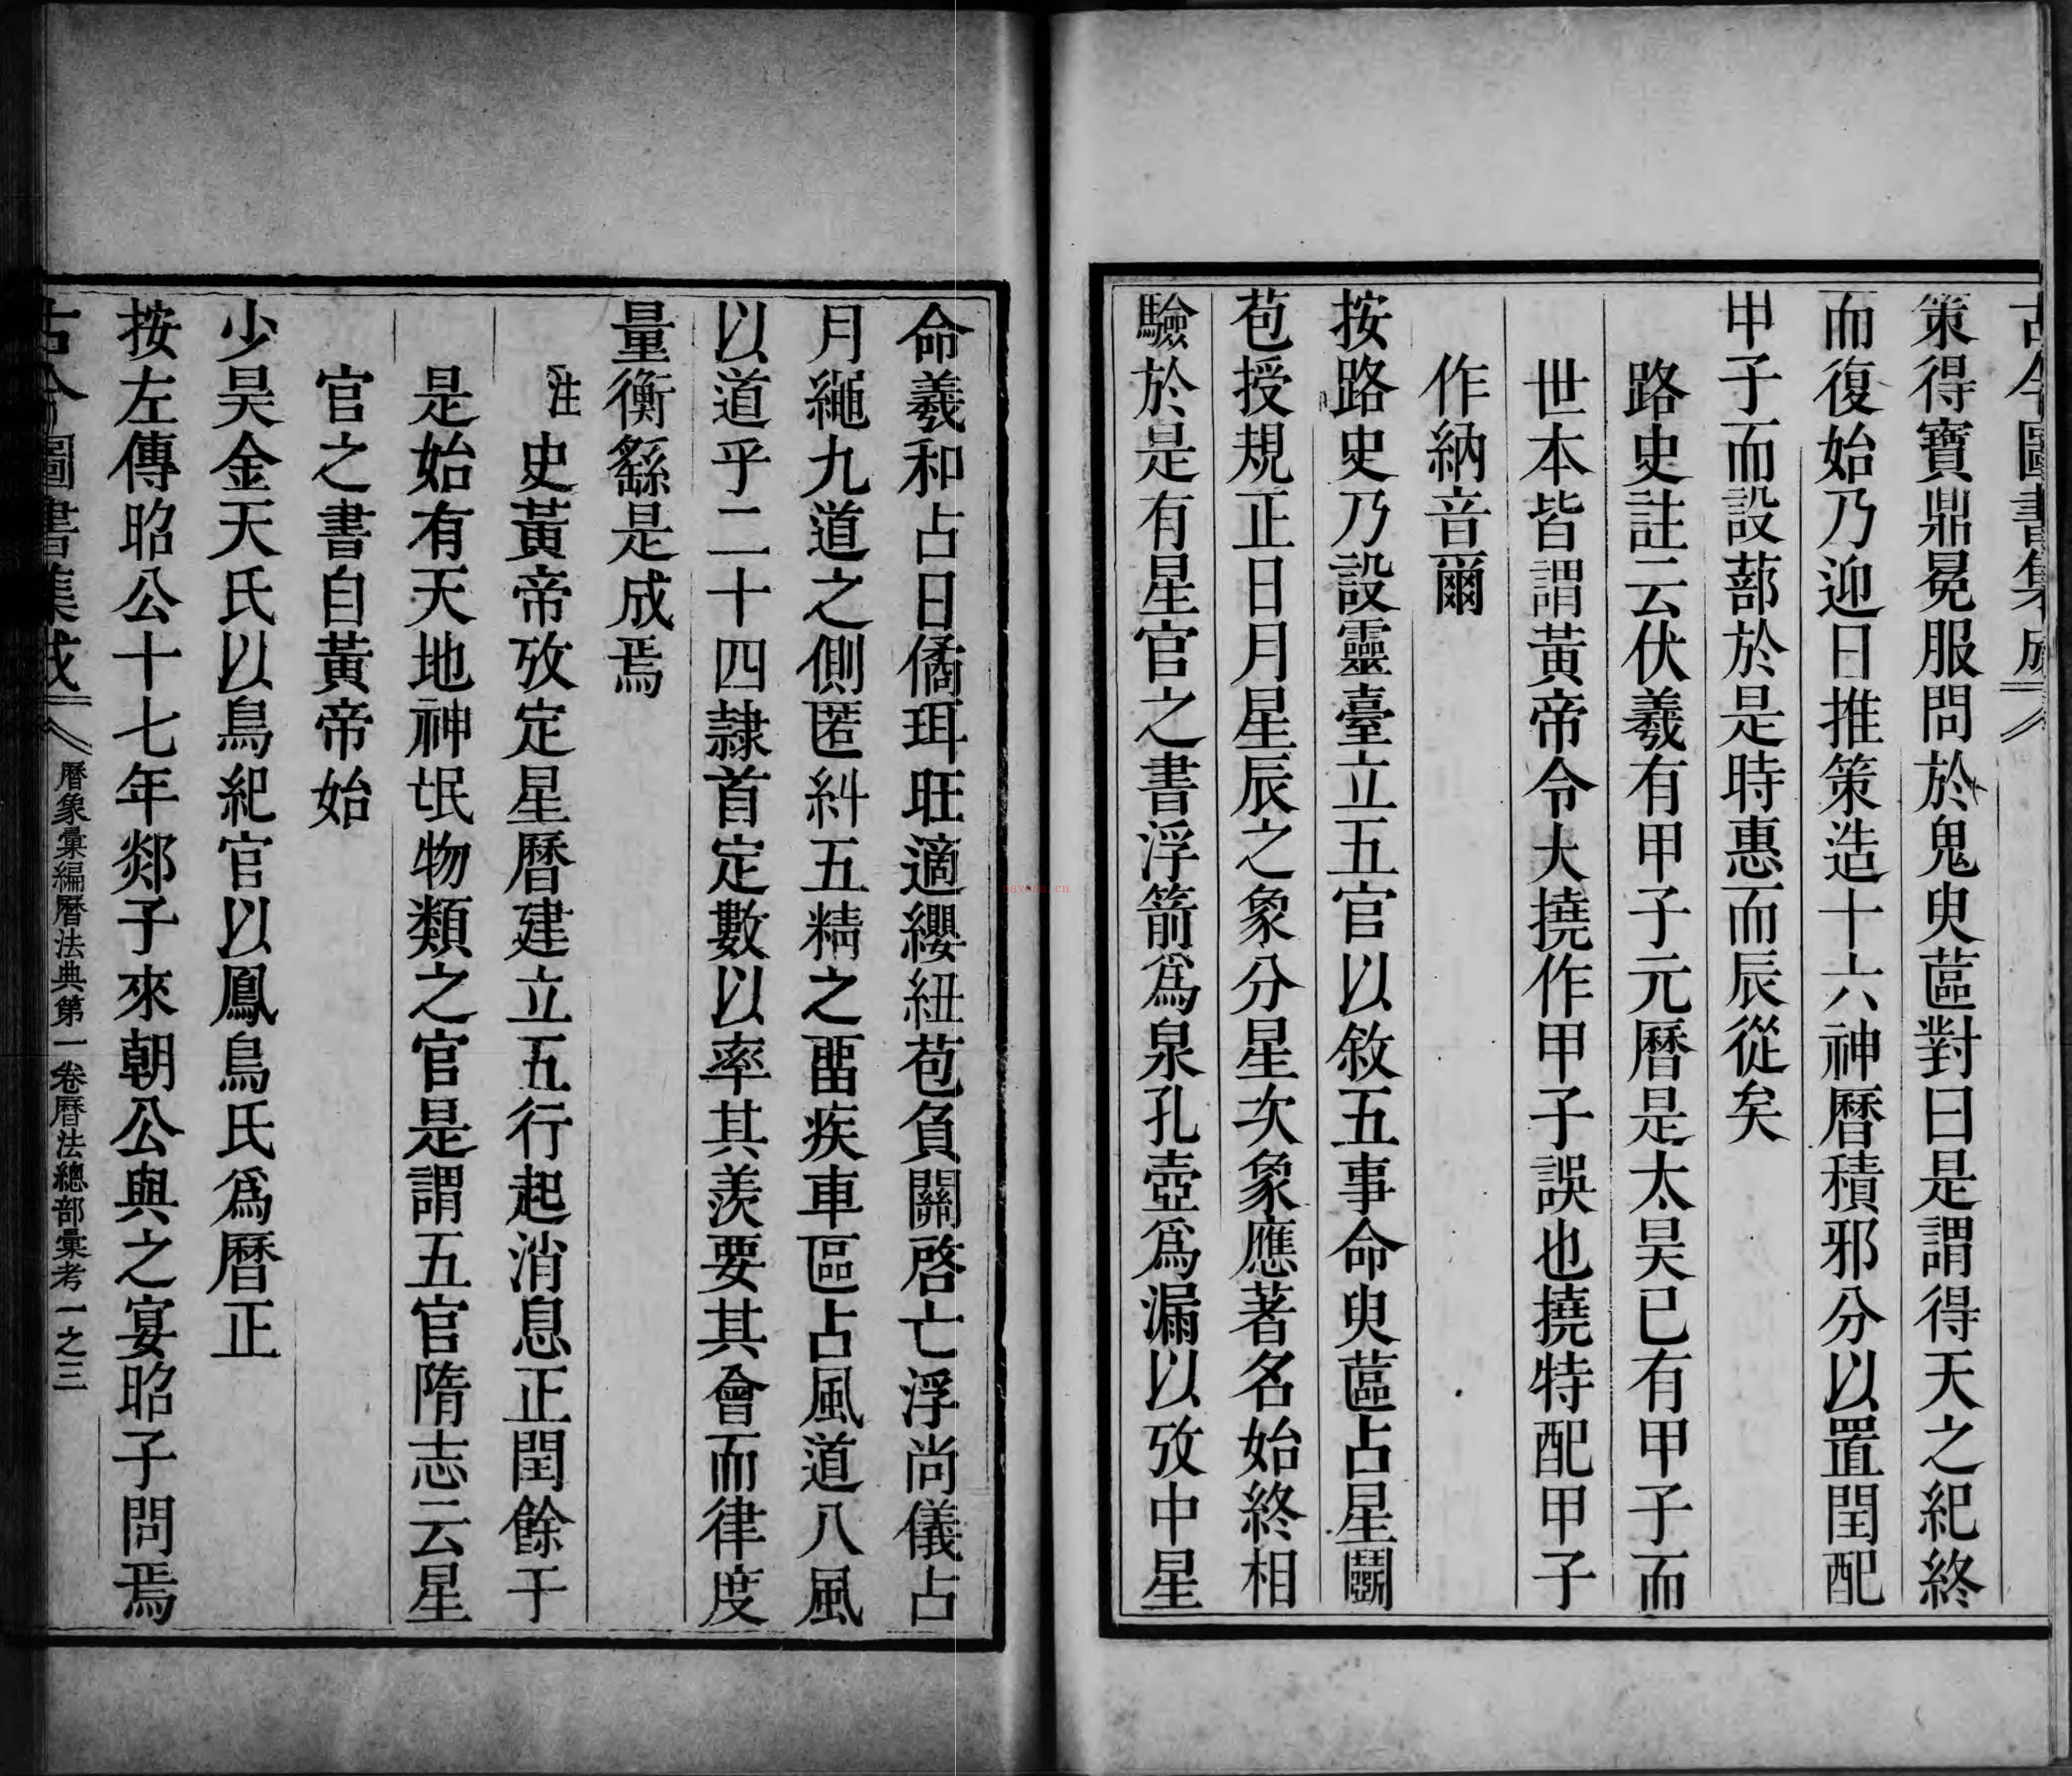 古今圖書集成
策得寶鼎冕服問於鬼臾蓲對曰是謂得天之紀終
而復始乃迎日推策造十六神曆積邪分以置閏配
甲子而設蔀於是時惠而辰從矣
路史註云伏羲有甲子元曆是太昊已有甲子而
世本皆謂黃帝令大撓作甲子誤也撓特配甲子
作納音爾
按路史乃設靈臺立五官以敘五事命臾蓲占星鬭
苞授規正日月星辰之象分星次象應著名始終相
驗於是有星官之書浮箭爲泉孔壺爲漏以攷中星
命羲和占日僪珥旺適纓紐苞負關啓亡浮尚儀占
月繩九道之側匿糾五精之畱疾車區占風道八風
以道乎二十四隷首定數以率其羨要其會而律度
量衡繇是成焉
注史黃帝攷定星曆建立五行起消息正閏餘于
是始有天地神氓物類之官是謂五官隋志云星
官之書自黃帝始
少昊金天氏以鳥紀官以鳳鳥氏爲曆正
按左傳昭公十七年郯子來朝公與之宴昭子問焉
古今圖書集成 曆象彙編曆法典第一卷曆法總部彙考一之三